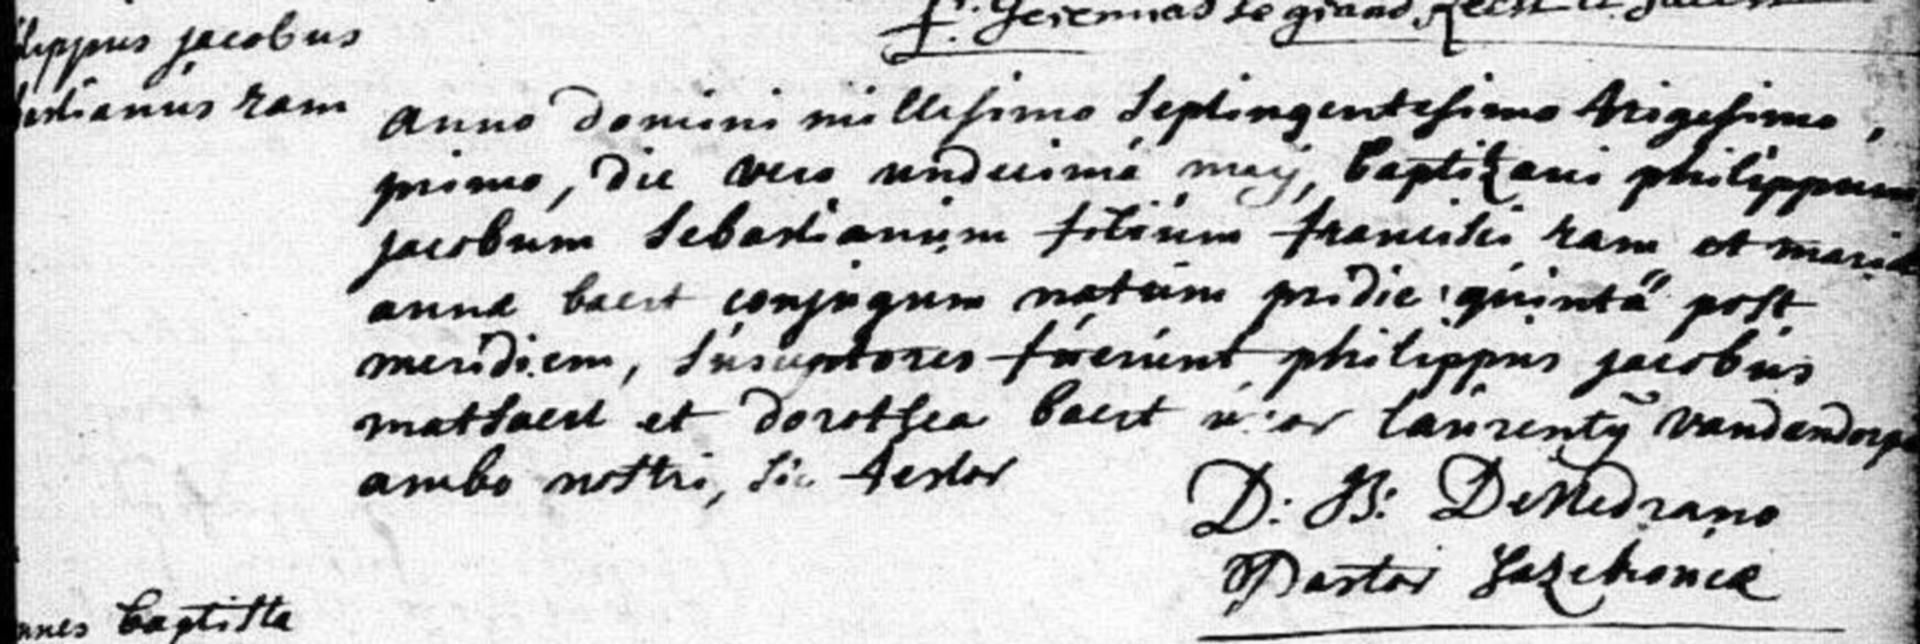 f. Jeremias Le grand
lippus jacobus
bastianus ram
anno domini millesimo septingentesimo trigesimo,
primo, die vero undecima maij, baptizavi philippum
jacobum sebastianum filium francisci ram et maria
anna baert conjugum natum pridie quinta post
meridiem, susceptores fuerunt philippus jacobus
mathaert et dorothea baert uxor laurentij vandendorpe
ambo nostri, sic testor
D: B: DeMedrano
Pastor
nnes baptista